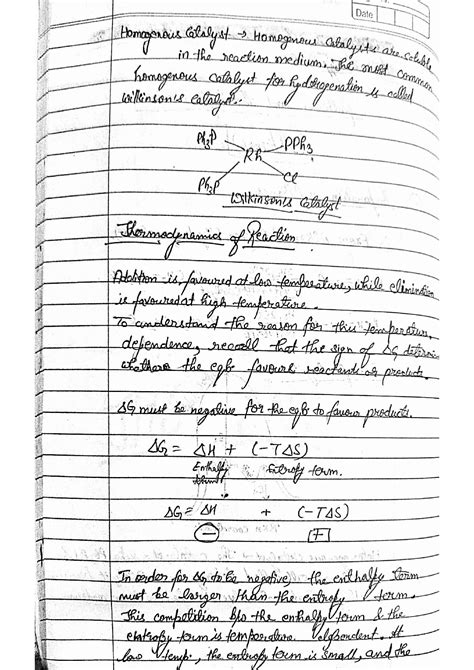 Date
Homogenous Catalyst → Homogenous Catalysts are soluble
in the reaction medium. The most common
homogenous Catalyst for hydrogenation is called
Wilkinson's Catalyst.
Ph3P PPh3
Rh
Ph3P Cl
Wilkinson's Catalyst
Thermodynamics of Reaction
Addition is favoured at low temperature, while elimination
is favoured at high temperature.
To understand the reason for this temperature
dependence, recall that the sign of ΔG determine
whether the eqb favours reactants or products.
ΔG must be negative for the eqb to favour products.
ΔG = ΔH + (-TΔS)
Enthalpy Entropy term.
term
ΔG = ΔH + (-TΔS)
- +
In order for ΔG to be negative, the enthalpy term
must be larger than the entropy term.
This competition b/w the enthalpy term & the
term is temperature dependent. At
low temp., the entropy term is small, and the